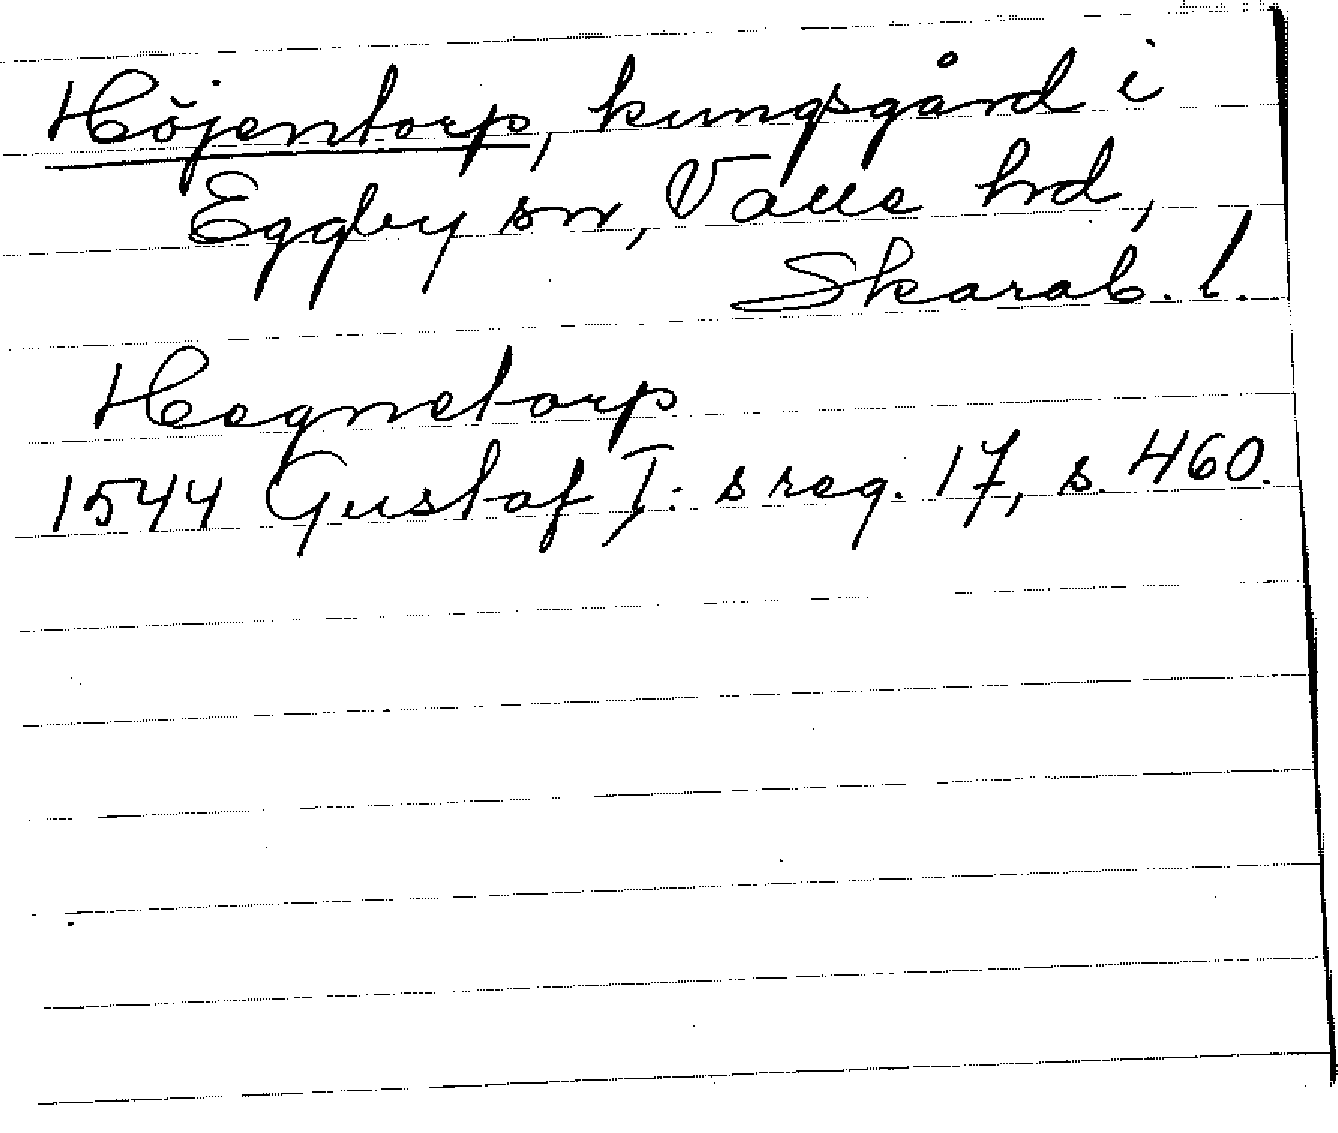 Höjentorp, kungsgård i
Eggby sn, Valle hd,
Skarab. l.
Hegnetorp
1544 Gustaf I: s reg. 17, s. 460.